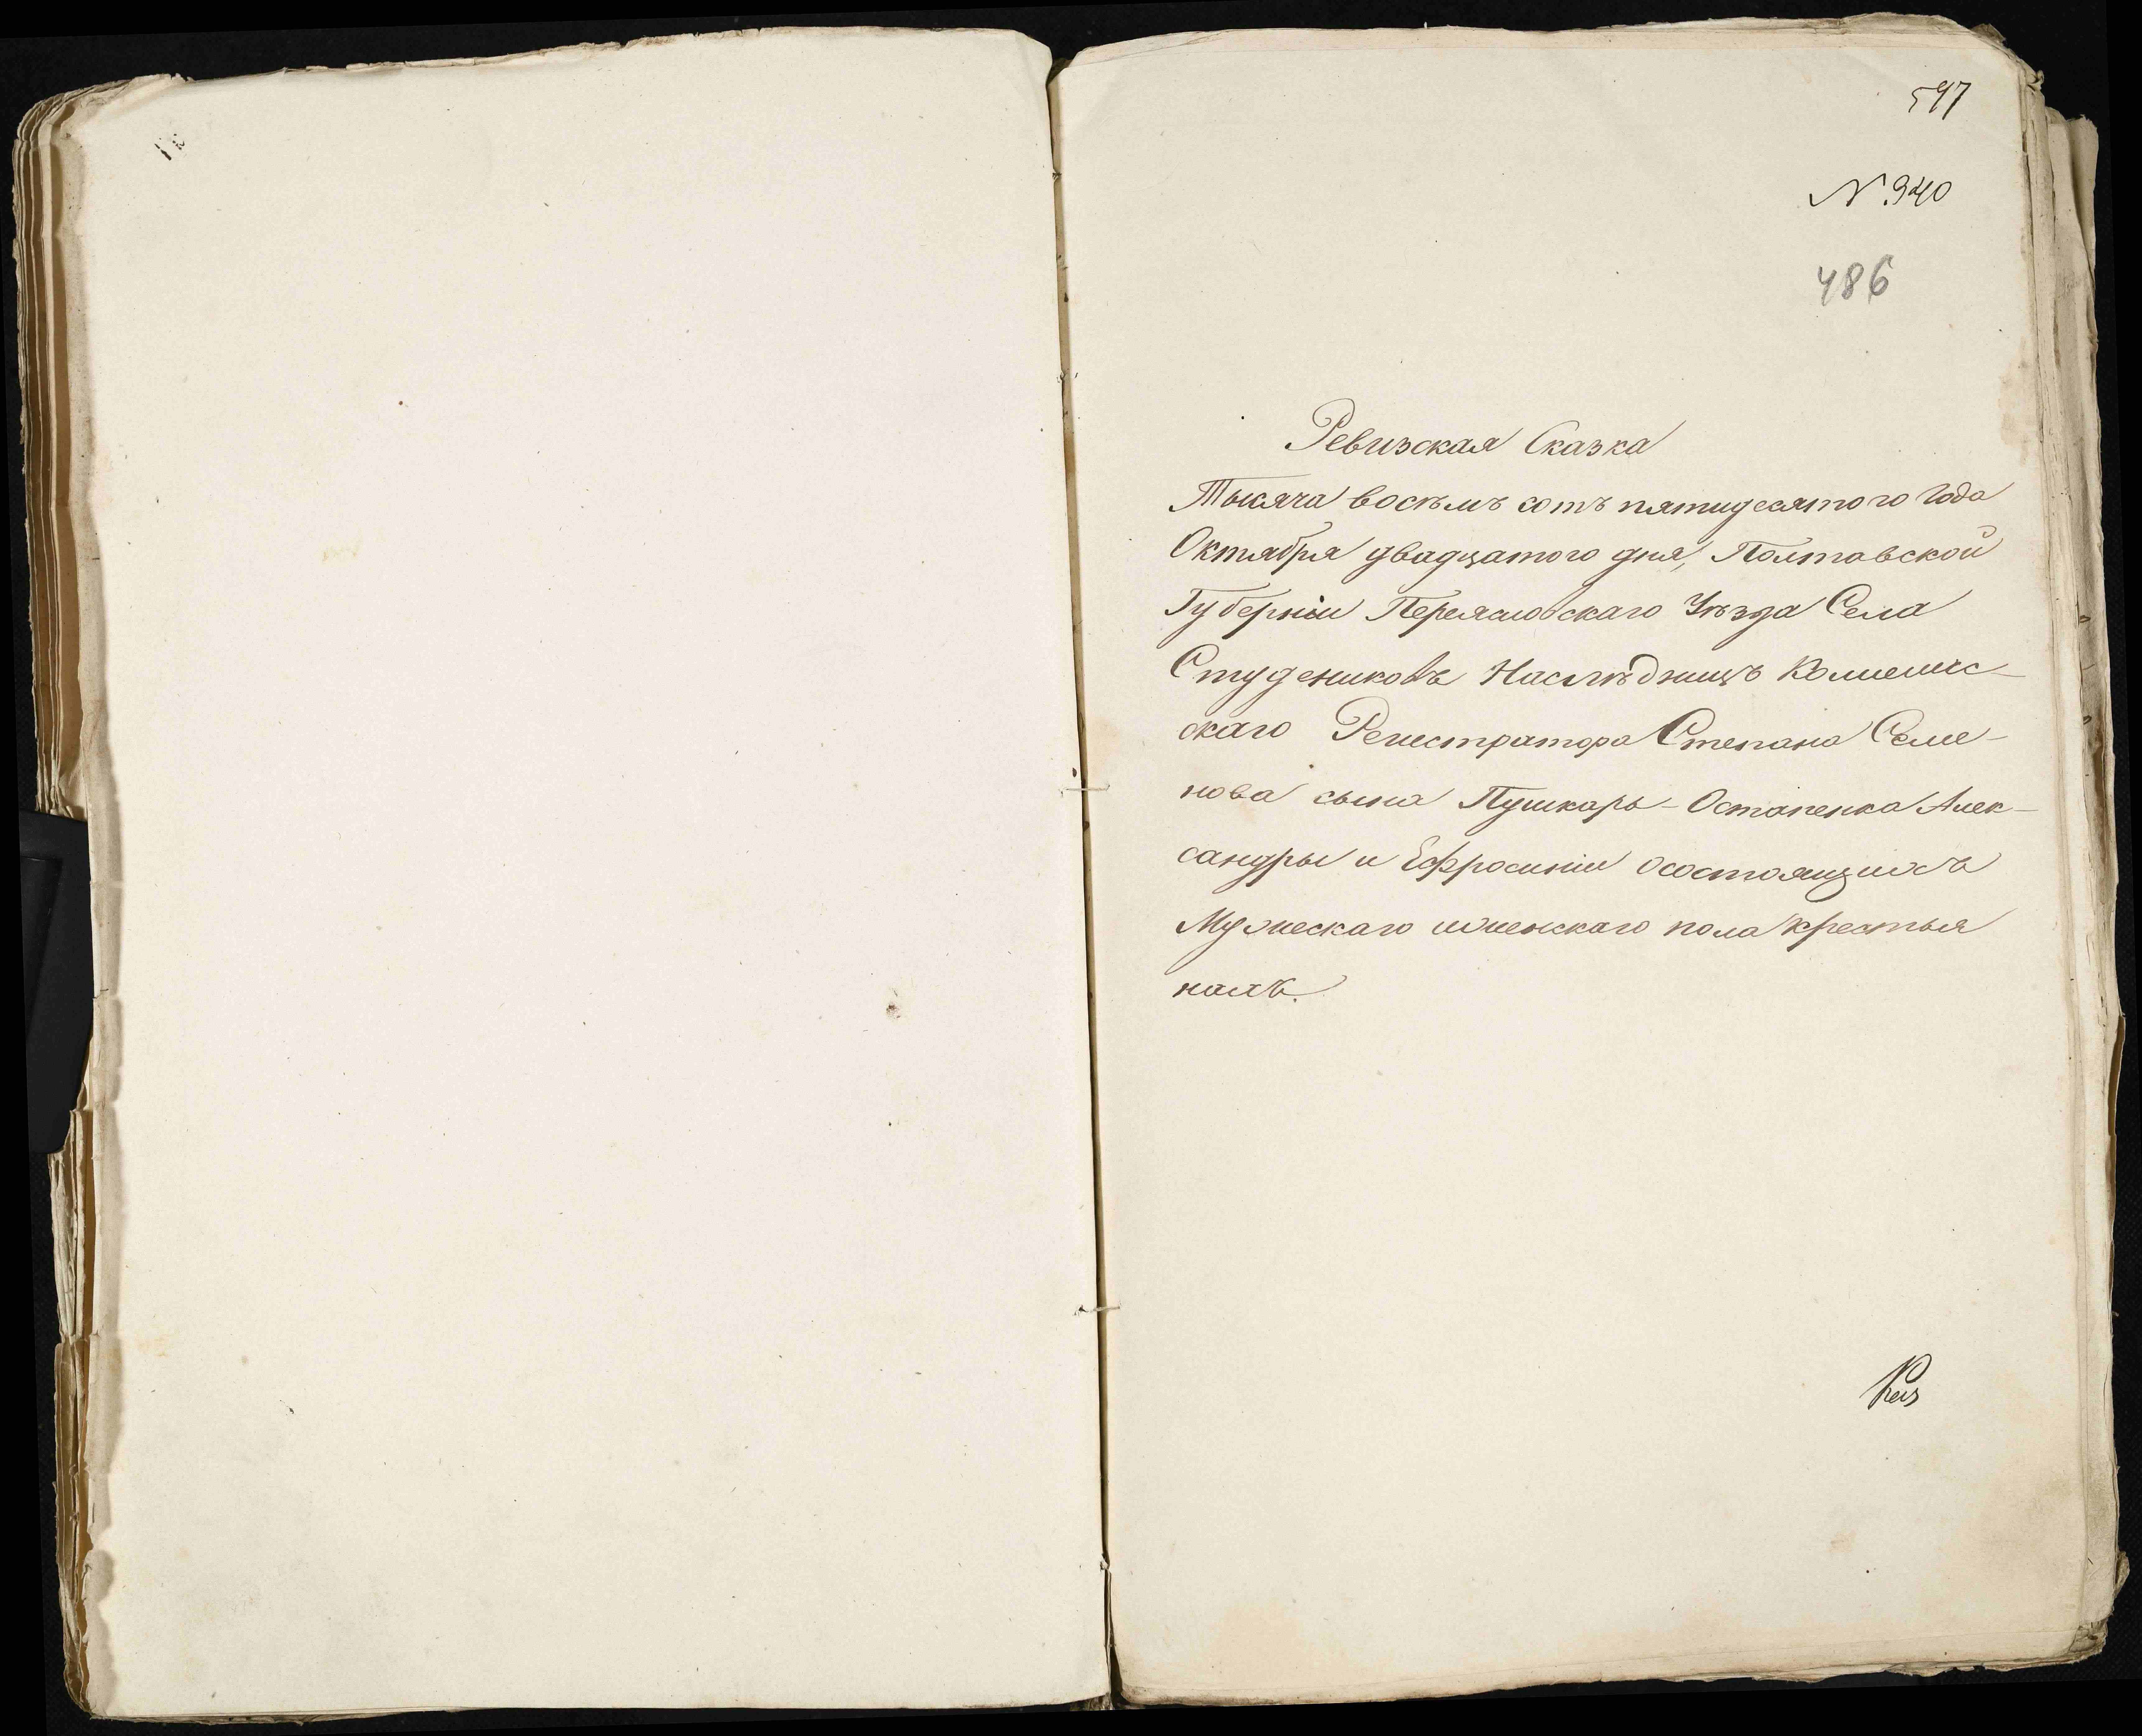 597
№ 940
486
Ревизская Сказка
Тысяча восѣмъ сотъ пятидесятого года
Октября двадцатого дня, Полтавской
Губерніи Переясловскаго Уѣзда Села
Студениковъ Наслѣдницъ Коллежс-
скаго Регистратора Степана Семе-
нова сына Пушкаря-Остапенка Алек-
сандры и Ефросиніи осостоящихъ
Мужескаго иженскаго пола крестья
нахъ.